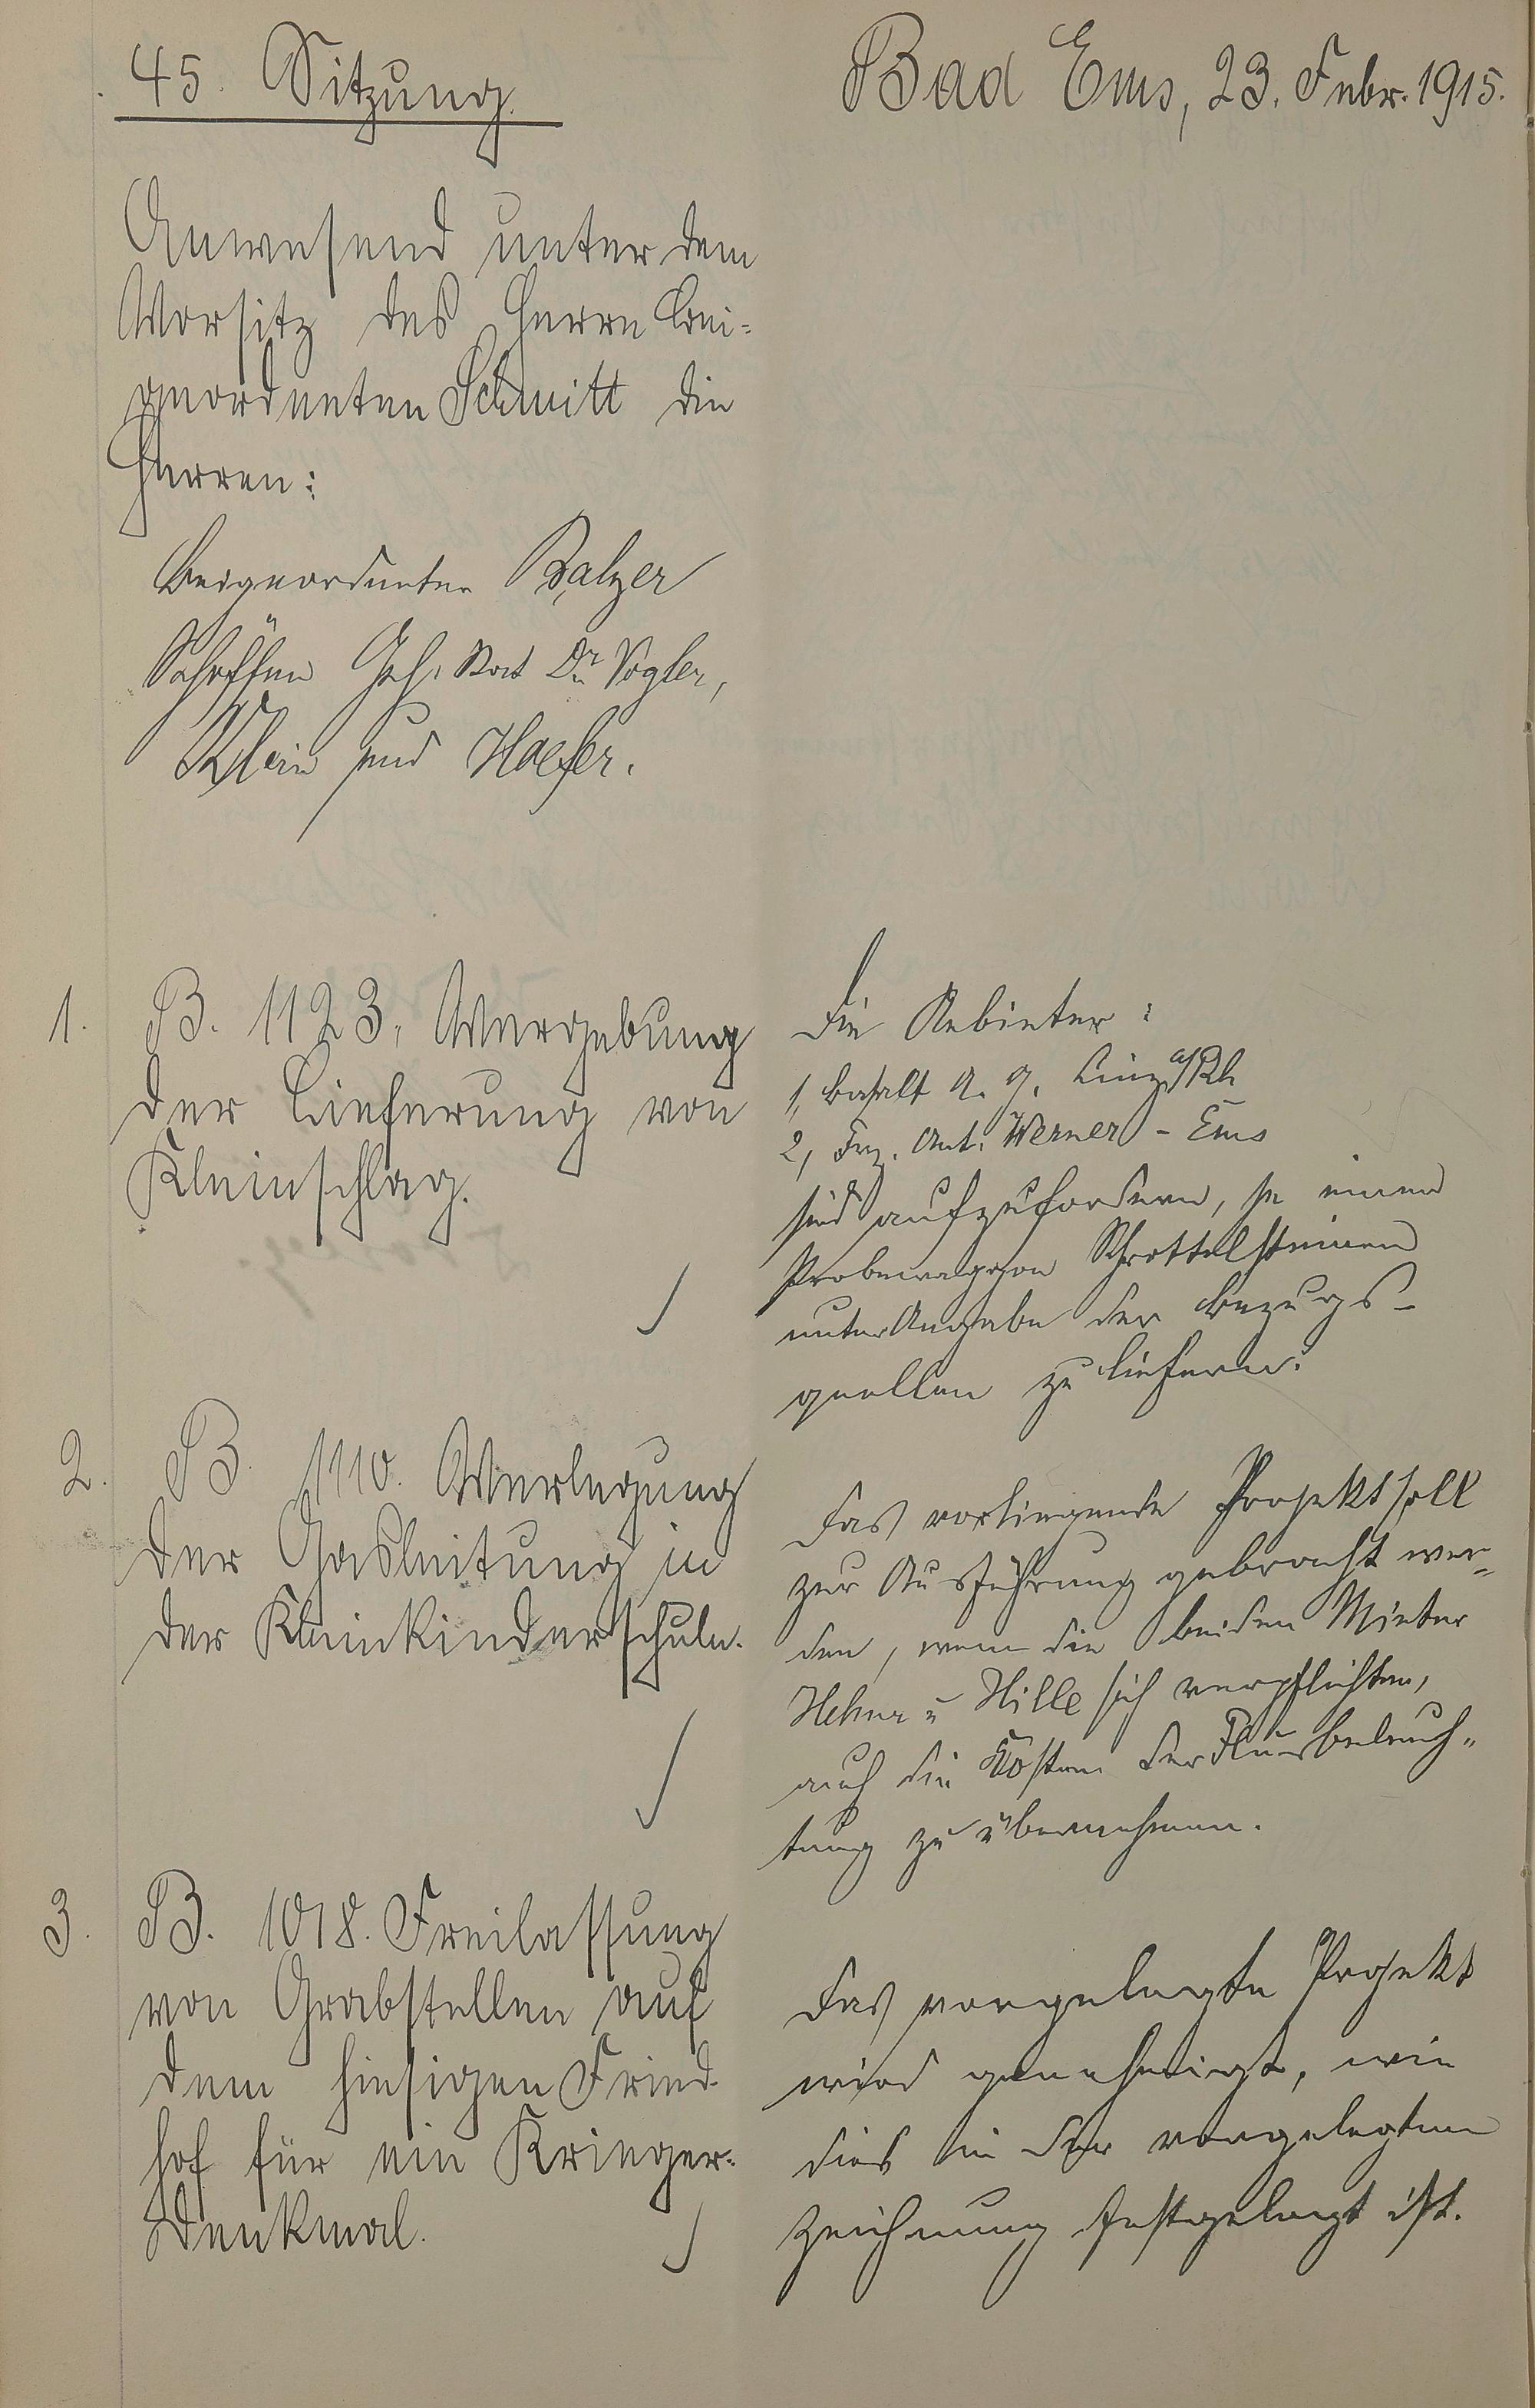 45. Sitzung.
Bad Ems, 23. Febr. 1915.
Anwesend unter dem
Vorsitz des Herrn Bei-
geordneten Schmitt die
Herren:
Beigeordneter Balzer
Schöffen Geh. Rat Dr. Vogler,
Klein und Haefer.
1. B. 1123. Vergebung
der Lieferung von
Kleinschlag.
Die Anbieter:
1, Basalt A. G. Linz a/Rh
2, Frz. Ant. Werner - Ems
sind aufzufordern, je einen
Probewaggon Schrottelsteinen
unter Angabe der Bezugs-
quellen zu liefern.
2. B. 1110. Verlegung
der Gasleitung in
der Kleinkinderschule.
Das vorliegende Projekt soll
zur Ausführung gebracht wer-
den, wenn die beiden Mieter
Hehner u Hille sich verpflichten,
auch die Kosten der Flurbeleuch-
tung zu übernehmen.
3. B. 1018. Freilassung
von Grabstellen auf
dem hiesigen Fried-
hof für ein Krieger-
denkmal.
Das vorgelegte Projekt
wird genehmigt, wie
dies in der vorgelegten
Zeichnung festgelegt ist.